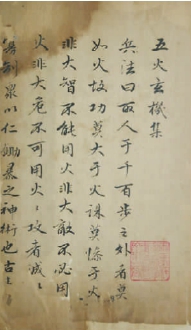 五火玄機集
兵法曰取人于千百步之外者莫
如火故功莫大于火誅莫慘于火
非大智不能用火非大敵不必用
火非大危不可用火〻攻者誠〻
易制眾以仁鋤暴之神術也古